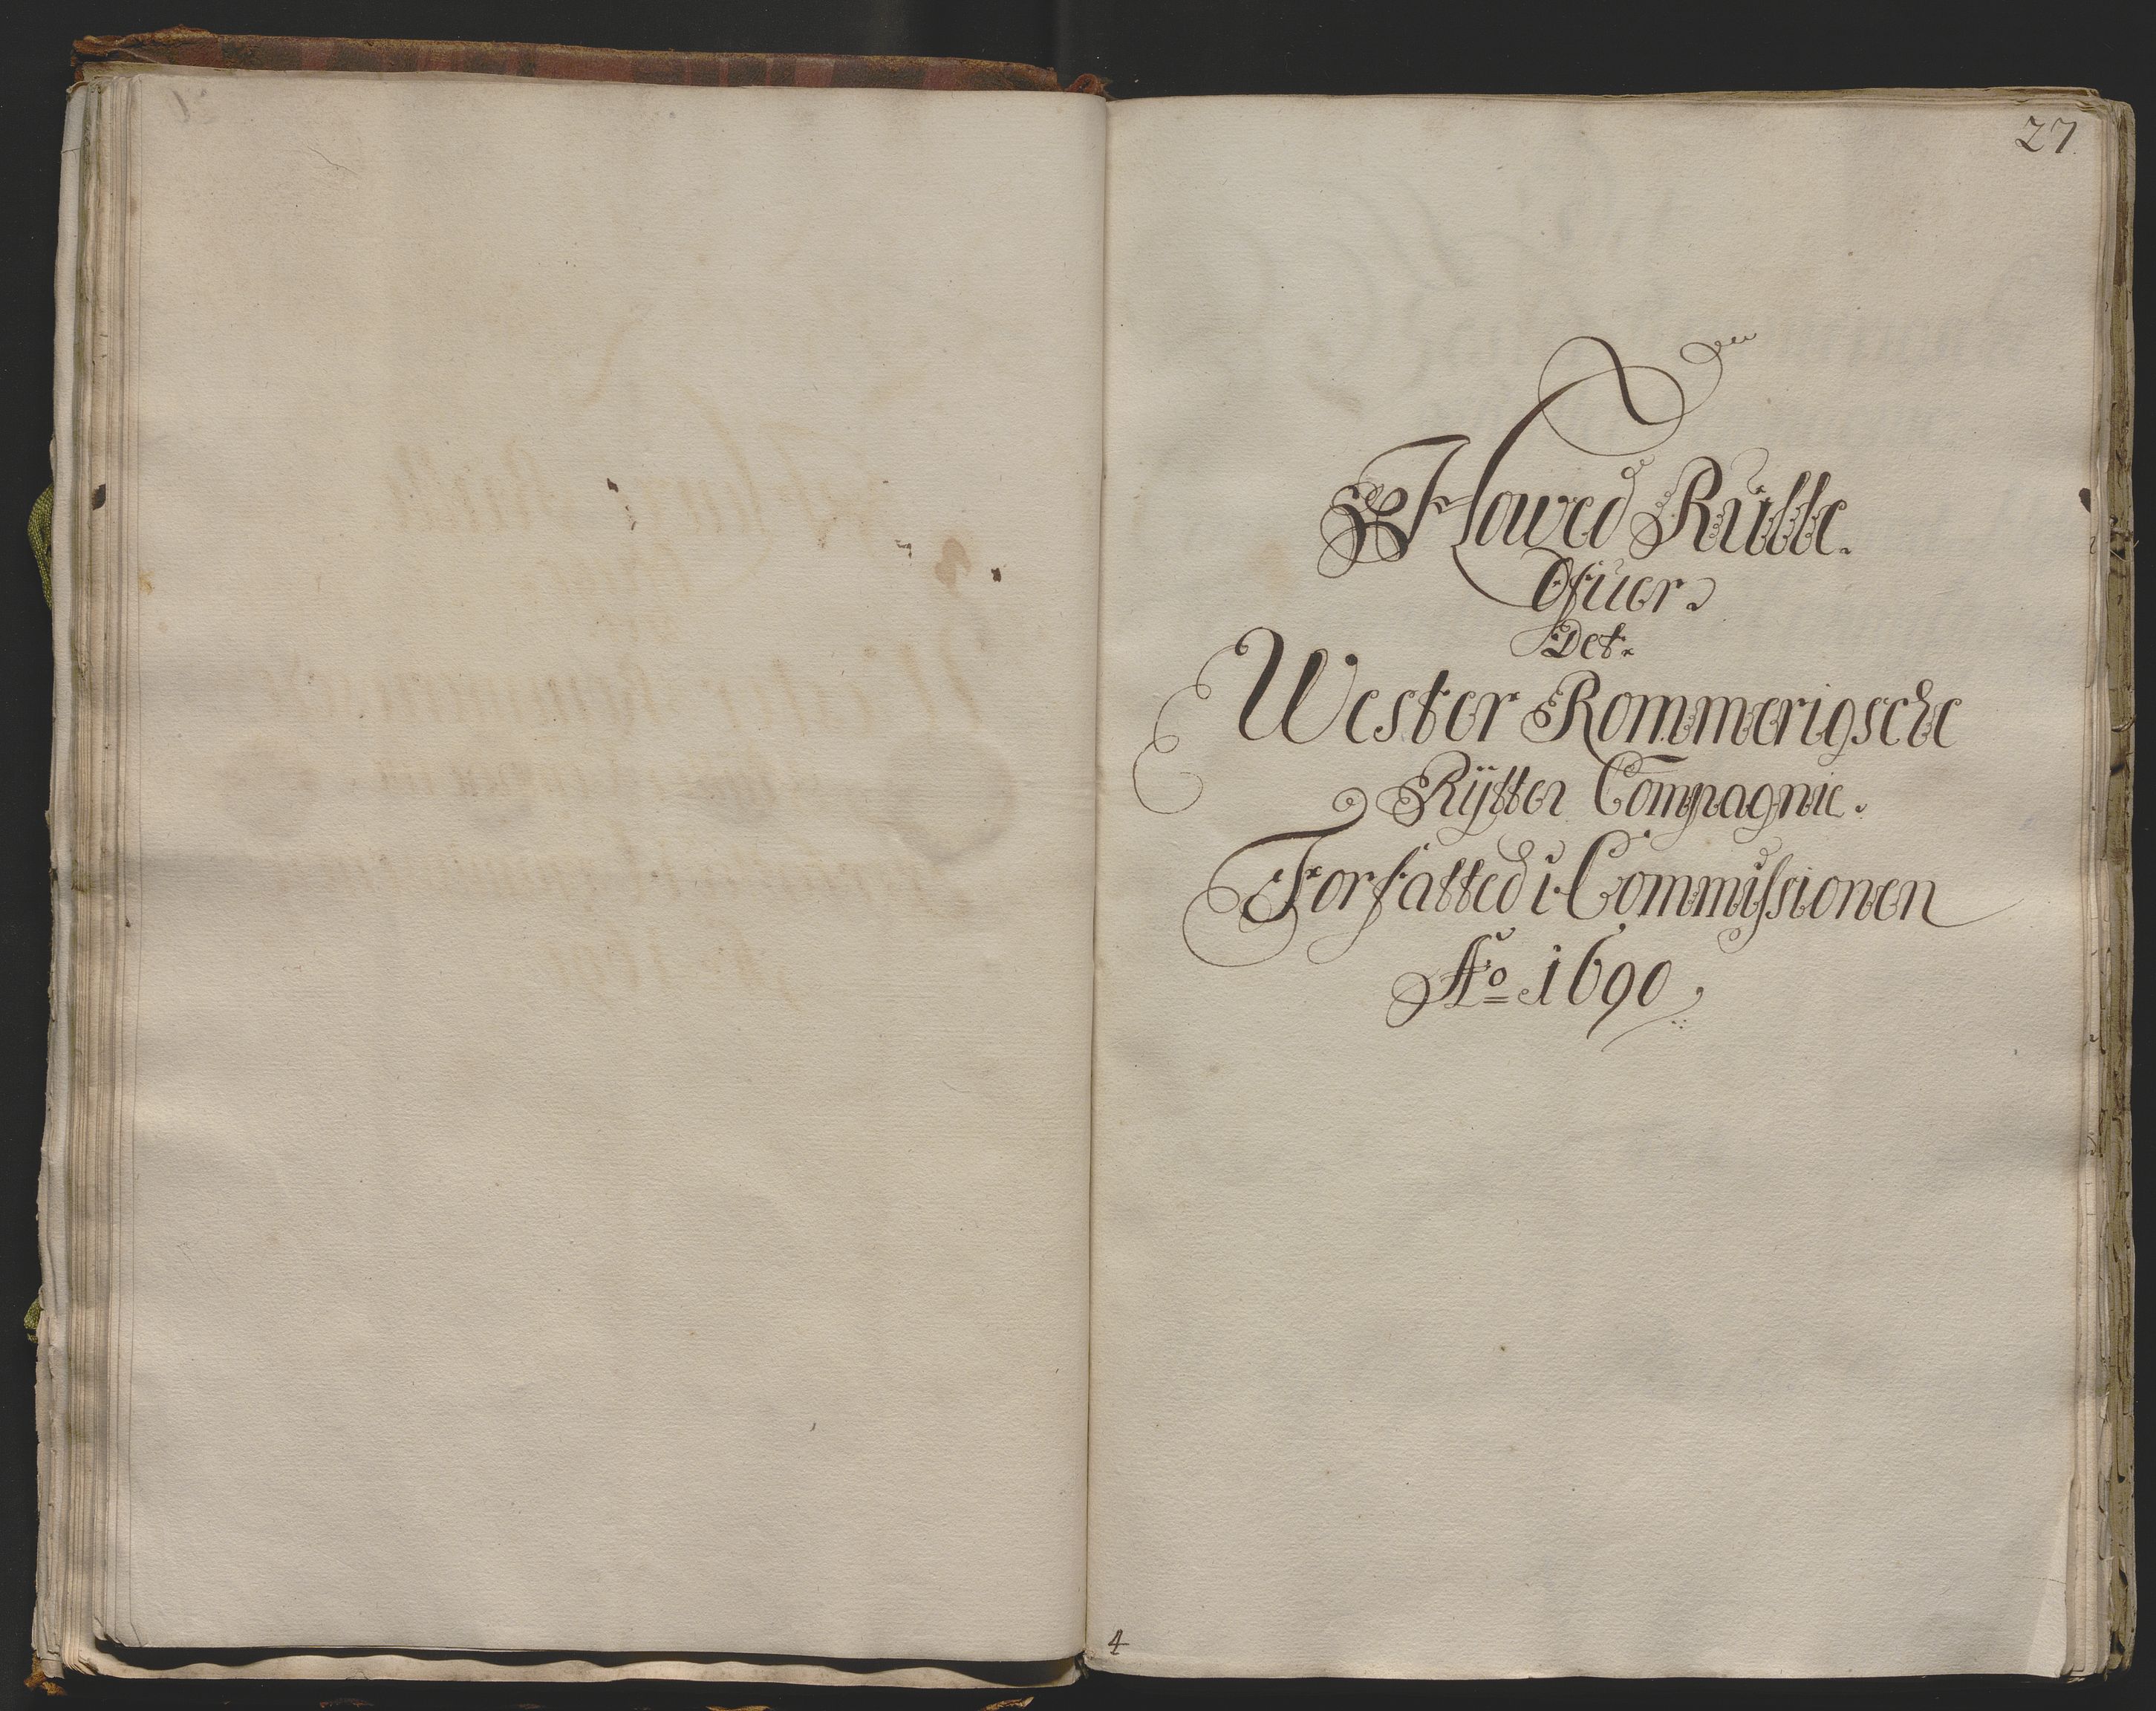 27
Howed Rulle.
Ofuer.
Det.
Wester Rommerigsche
Rÿtter Compagnie.
Forfatted i Commissionen
Ao 1690
4